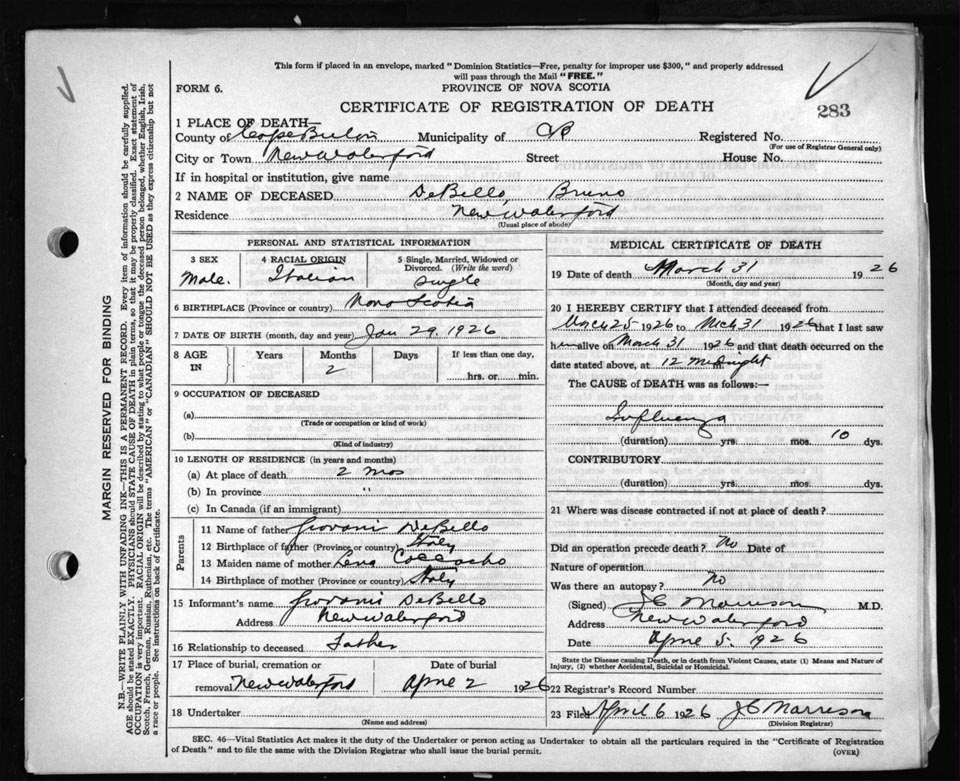 This form if placed in an envelope, marked "Dominion Statistics—Free, penalty for improper use $300," and properly addressed
will pass through the Mail "FREE."
FORM 6.
PROVINCE OF NOVA SCOTIA
CERTIFICATE OF REGISTRATION OF DEATH
283
1 PLACE OF DEATH—
County of Cape Breton Municipality of CB Registered No.
(For use of Registrar General only)
City or Town New Waterford Street House No.
If in hospital or institution, give name
2 NAME OF DECEASED DeBello, Bruno
Residence New Waterford
(Usual place of abode)
PERSONAL AND STATISTICAL INFORMATION
3 SEX Male.
4 RACIAL ORIGIN Italian
5 Single, Married, Widowed or Divorced. (Write the word) Single
6 BIRTHPLACE (Province or country) Nova Scotia
7 DATE OF BIRTH (month, day and year) Jan 29, 1926
8 AGE IN Years Months 2 Days If less than one day, hrs. or min.
9 OCCUPATION OF DECEASED
(a)
(Trade or occupation or kind of work)
(b)
(Kind of industry)
10 LENGTH OF RESIDENCE (in years and months)
(a) At place of death 2 mos
(b) In province "
(c) In Canada (if an immigrant)
Parents
11 Name of father Giovani DeBello
12 Birthplace of father (Province or country) Italy
13 Maiden name of mother Lena
14 Birthplace of mother (Province or country) Italy
15 Informant's name Giovani DeBello
Address New Waterford
16 Relationship to deceased Father
17 Place of burial, cremation or removal New Waterford
Date of burial April 2 1926
18 Undertaker
(Name and address)
MEDICAL CERTIFICATE OF DEATH
19 Date of death March 31 1926
(Month, day and year)
20 I HEREBY CERTIFY that I attended deceased from
March 25 1926 to Mch 31 1926 that I last saw
him alive on March 31 1926 and that death occurred on the
date stated above, at 12 midnight
The CAUSE of DEATH was as follows:—
Influenza
(duration) yrs. mos. 10 dys.
CONTRIBUTORY
(duration) yrs. mos. dys.
21 Where was disease contracted if not at place of death?
Did an operation precede death? No Date of
Nature of operation
Was there an autopsy? No
(Signed) J C Morrison M.D.
Address New Waterford
Date April 5. 1926
State the Disease causing Death, or in death from Violent Causes, state (1) Means and Nature of
Injury, (2) whether Accidental, Suicidal or Homicidal.
22 Registrar's Record Number
23 Filed April 6 1926 J C Morrison
(Division Registrar)
SEC. 46—Vital Statistics Act makes it the duty of the Undertaker or person acting as Undertaker to obtain all the particulars required in the "Certificate of Registration
of Death" and to file the same with the Division Registrar who shall issue the burial permit.
(OVER)
MARGIN RESERVED FOR BINDING
N.B.—WRITE PLAINLY WITH UNFADING INK—THIS IS A PERMANENT RECORD. Every item of information should be carefully supplied.
AGE should be stated EXACTLY. PHYSICIANS should STATE CAUSE OF DEATH in plain terms, so that it may be properly classified. Exact statement of
OCCUPATION is very important. RACIAL ORIGIN will be described by stating to what people or tongue the deceased person belonged, whether English, Irish,
Scotch, French, German, Russian, Ruthenian, etc. The terms "AMERICAN" or "CANADIAN" SHOULD NOT BE USED as they express citizenship but not
a race or people. See instructions on back of Certificate.